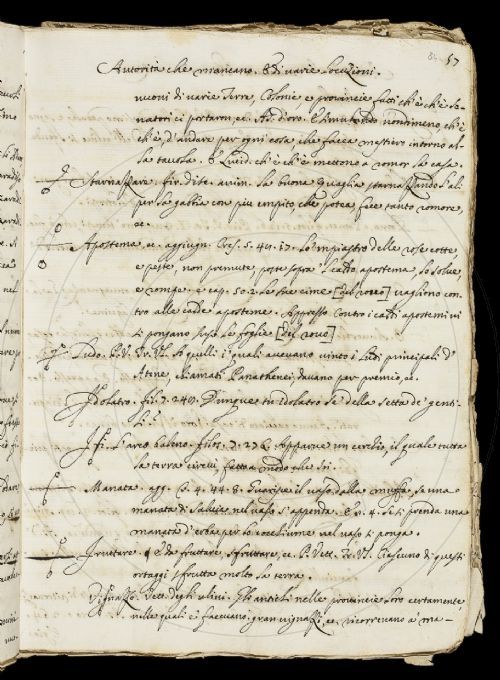 57
Autorità che mancano. & di varie locuzioni.
nuoni di varie Terre, Colonie e provincie fatti ch'è ch'è Se-
natori si portaron, ec. As. d'oro. Et havendo nondimeno, ch'è
ch'è, d'andare per ogni cosa che facea mestiero intorno al-
la tavola. & ch'è ch'è mettono a romor la casa.
Starnazzare. la buona quaglia starnazzando l'ali
per la gabbia con più empito che potea, fece tanto romore,
ec.
Apostema, ec. aggiugn. Cres. 5. 49. 17. Lo'mpiastro delle rose cotte
e peste, non premute, poste sopra 'l caldo apostema, lo solve,
e rompe. e cap. 50. 2. Le sue cime [del rovo] vagliono con
tro alle calde aposteme. Appresso Contro i caldi apostemi vi
si pongano suso le foglie [del rovo]
Ludo. P. V. A quelli i quali avevano vinto i Ludi principali d'
Atene, chiamati Panathenei, davano per premio, ec.
Idolatro. fil. 7. 249. Dunque tu idolatro se' della setta de' genti-
li?
Iri. L'arco baleno. filoc. 7. 276. Apparve un cerchio, il quale tutta
la terra circuì, fatto a modo che Iri.
Manata. agg. C. 4. 44. 8. Guarisce il vaso dalla muffa, se una
manata di Salvia nel vaso s'appenda. Cr. 4. Si prenda una
manata d'erba per lo cocchiume nel vaso si ponga.
Sfruttare. & da fruttare, sfruttare, ec. P. Vett. Ciascuno di questi
ortaggi sfrutta molto la terra.
Vignazzo. Vett. degli ulivi. Gli antichi nelle provincie loro certamente
nelle quali e' facevano gran vignazzi, ec. ricorrevano a' ma-